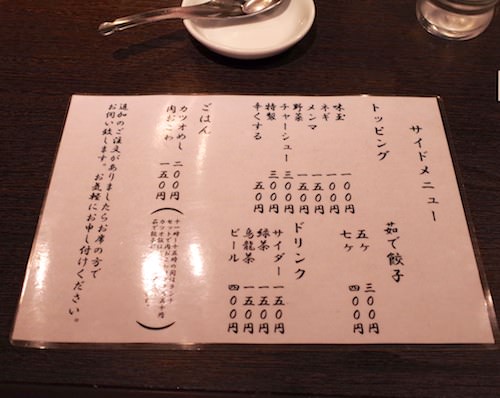 サイドメニュー
トッピング
味玉 一〇〇円
ネギ 一〇〇円
メンマ
野菜
チャーシュー 三〇〇円
特製 三〇〇円
辛くする 五〇円
茹で餃子
五ケ 三〇〇円
七ケ 四〇〇円
ドリンク
サイダー 一五〇円
緑茶 一五〇円
烏龍茶 一五〇円
ビール 四〇〇円
ごはん
カツオめし 二〇〇円
肉おこわ 一五〇円
追加のご注文がありましたらお席の方で
お伺い致します。お気軽にお申し付けください。